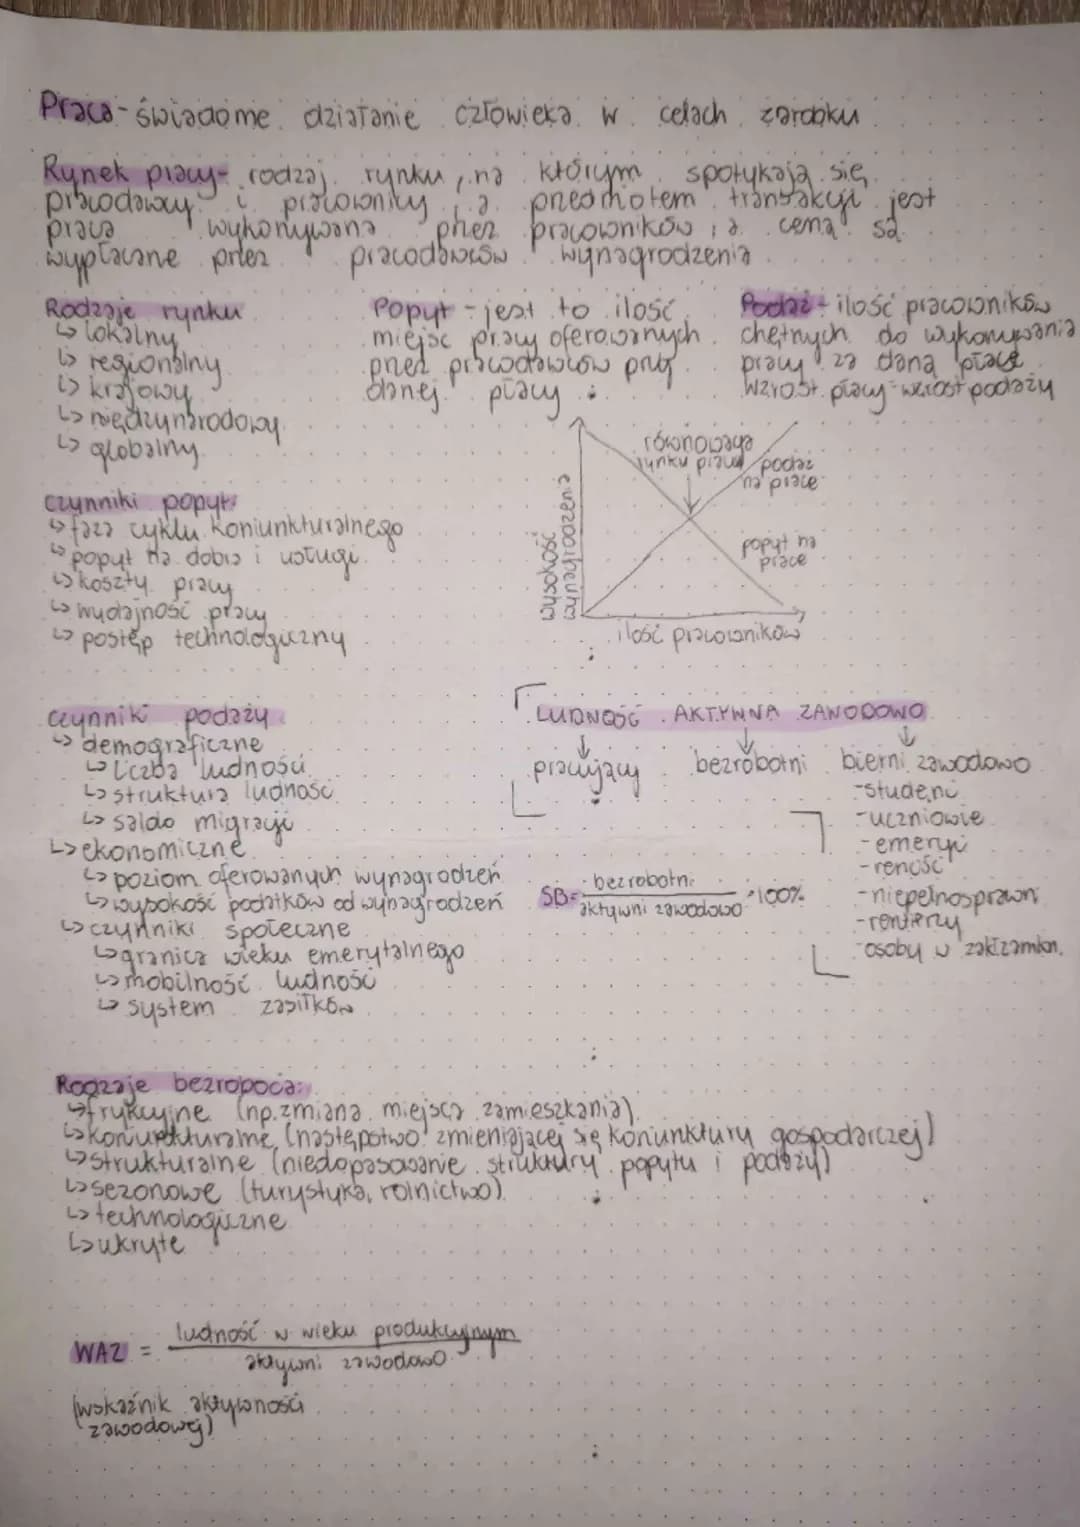 Praca - świadome działanie człowieka w celach zarobku
Rynek pracy - rodzaj rynku, na którym spotykają się
pracodawcy i pracownicy, a przedmiotem transakcji jest
praca wykonywana przez pracowników, a ceną są
wypłacane przez pracodawców wynagrodzenia
Rodzaje rynku
↳ lokalny
↳ regionalny
↳ krajowy
↳ międzynarodowy
↳ globalny
Popyt - jest to ilość
miejsc pracy oferowanych
przez pracodawców przy
danej płacy
Podaż - ilość pracowników
chętnych do wykonywania
pracy za daną płacę
wzrost płacy - wzrost podaży
równowaga
rynku pracy
podaż
na pracę
popyt na
pracę
wysokość
wynagrodzenia
ilość pracowników
czynniki popytu
↳ faza cyklu koniunkturalnego
↳ popyt na dobra i usługi
↳ koszty pracy
↳ wydajność pracy
↳ postęp technologiczny
czynniki podaży
↳ demograficzne
↳ liczba ludności
↳ struktura ludność
↳ saldo migracji
↳ ekonomiczne
↳ poziom oferowanych wynagrodzeń
↳ wysokość podatków od wynagrodzeń
↳ czynniki społeczne
↳ granica wieku emerytalnego
↳ mobilność ludności
↳ system zasiłków
LUDNOŚĆ AKTYWNA ZAWODOWO
↓ ↓ ↓
pracujący bezrobotni bierni zawodowo
- studenci
- uczniowie
- emeryci
- renciści
- niepełnosprawni
- rentierzy
- osoby w zakł.zamkn.
SB = bezrobotni / aktywni zawodowo · 100%
Rodzaje bezrobocia:
↳ frykcyjne (np. zmiana miejsca zamieszkania)
↳ koniunkturalne (następstwo zmieniającej się koniunktury gospodarczej)
↳ strukturalne (niedopasowanie struktury popytu i podaży)
↳ sezonowe (turystyka, rolnictwo)
↳ technologiczne
↳ ukryte
WAZ = ludność w wieku produkcyjnym / aktywni zawodowo
(wskaźnik aktywności
zawodowej)